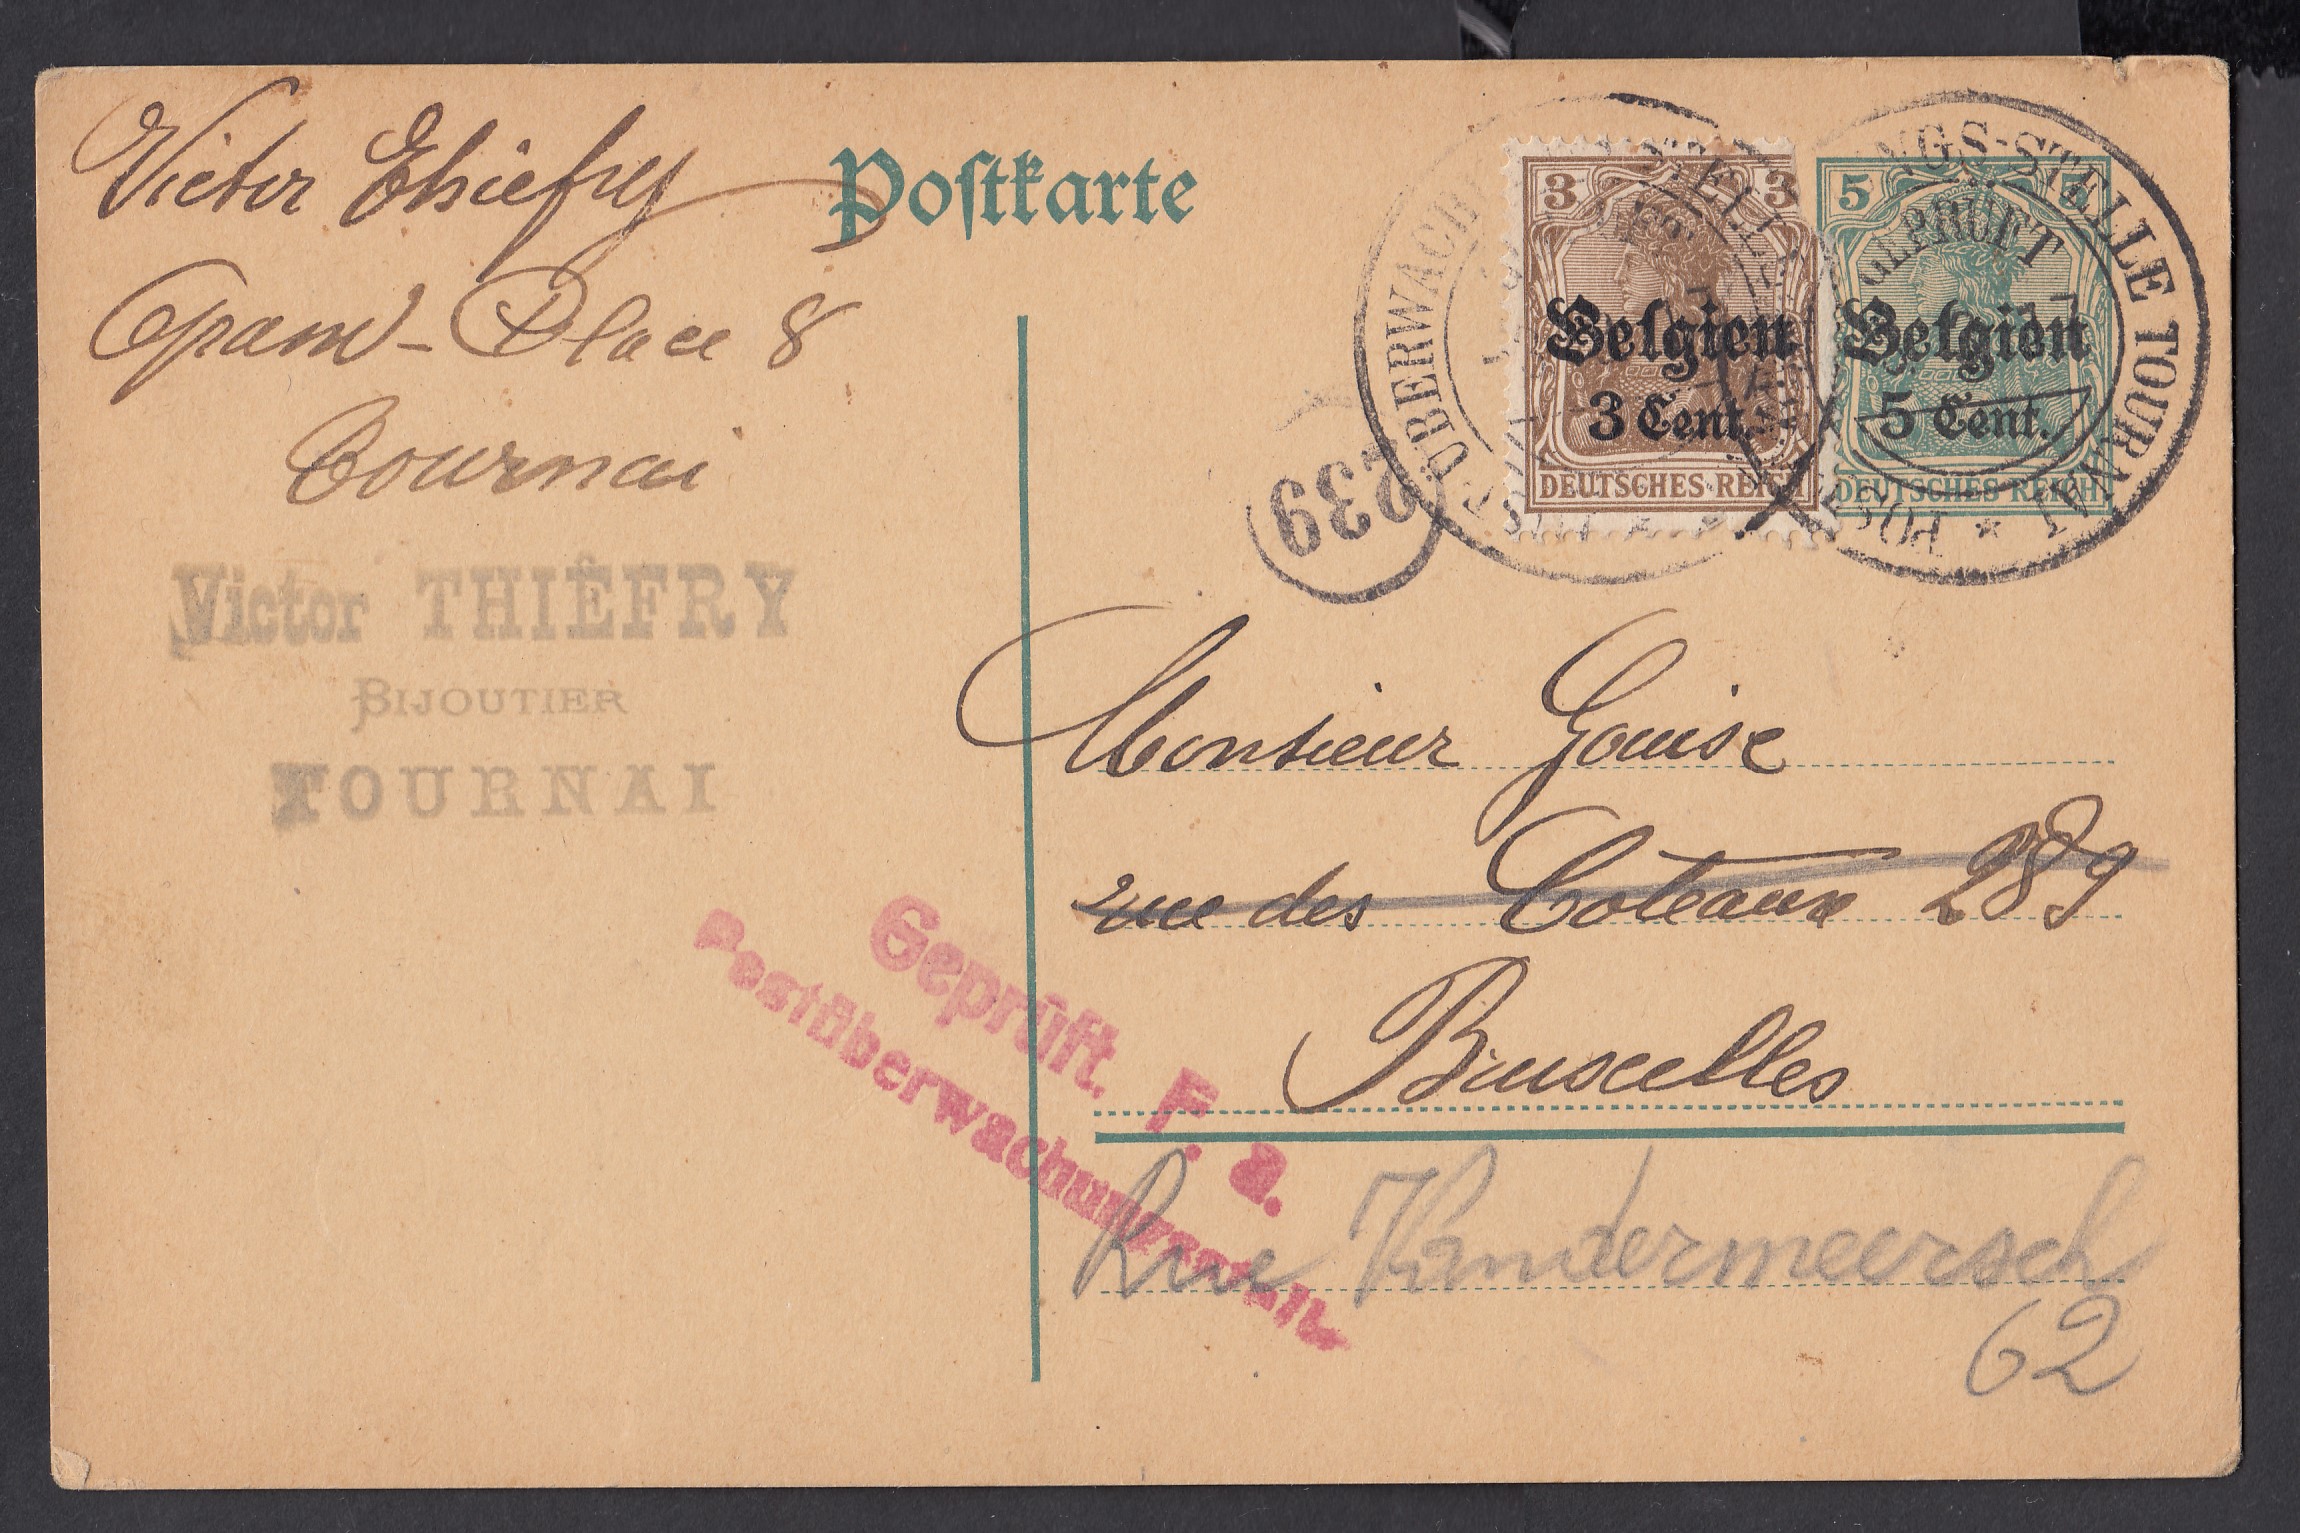 Victor Thiefry
Grand-Place 8
Tournai
Postkarte
3 3
Belgien
3 Cent.
DEUTSCHES REICH
5 5
Belgien
5 Cent.
DEUTSCHES REICH
POSTÜBERWACHUNGS-STELLE TOURNAI
GEPRÜFT
239
Victor THIÉFRY
BIJOUTIER
TOURNAI
Monsieur Gouise
rue des Coteaux 289
Bruxelles
Geprüft. F. a.
Postüberwachungsstelle
Rue Vandermeersch
62